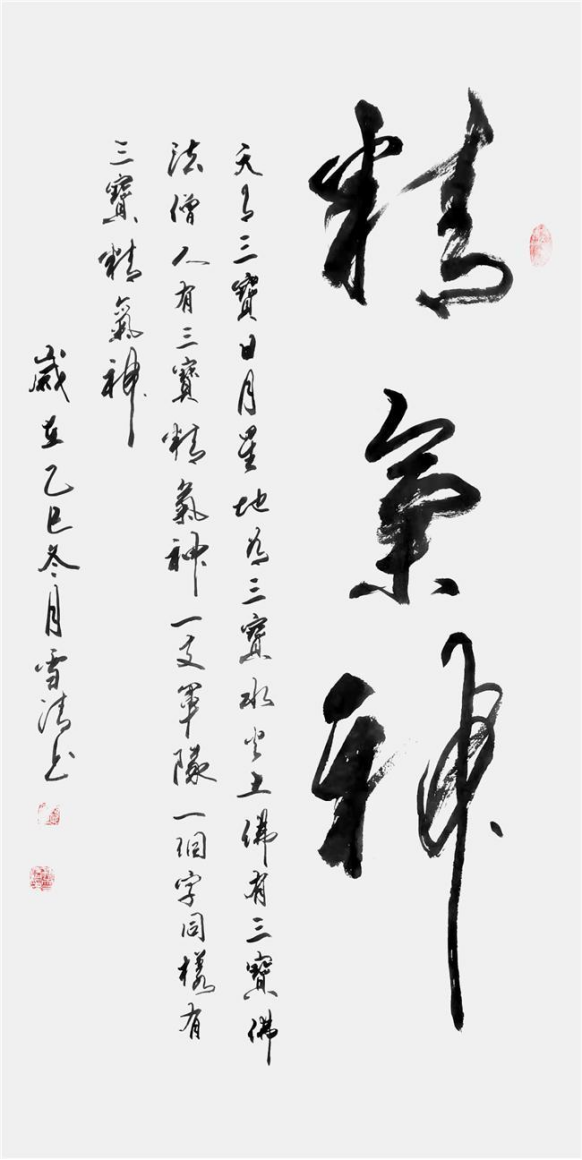 精氣神
天有三寶日月星地有三寶水火土佛有三寶佛
法僧人有三寶精氣神一支軍隊一個字同樣有
三寶精氣神
歲在乙巳冬月雪清书